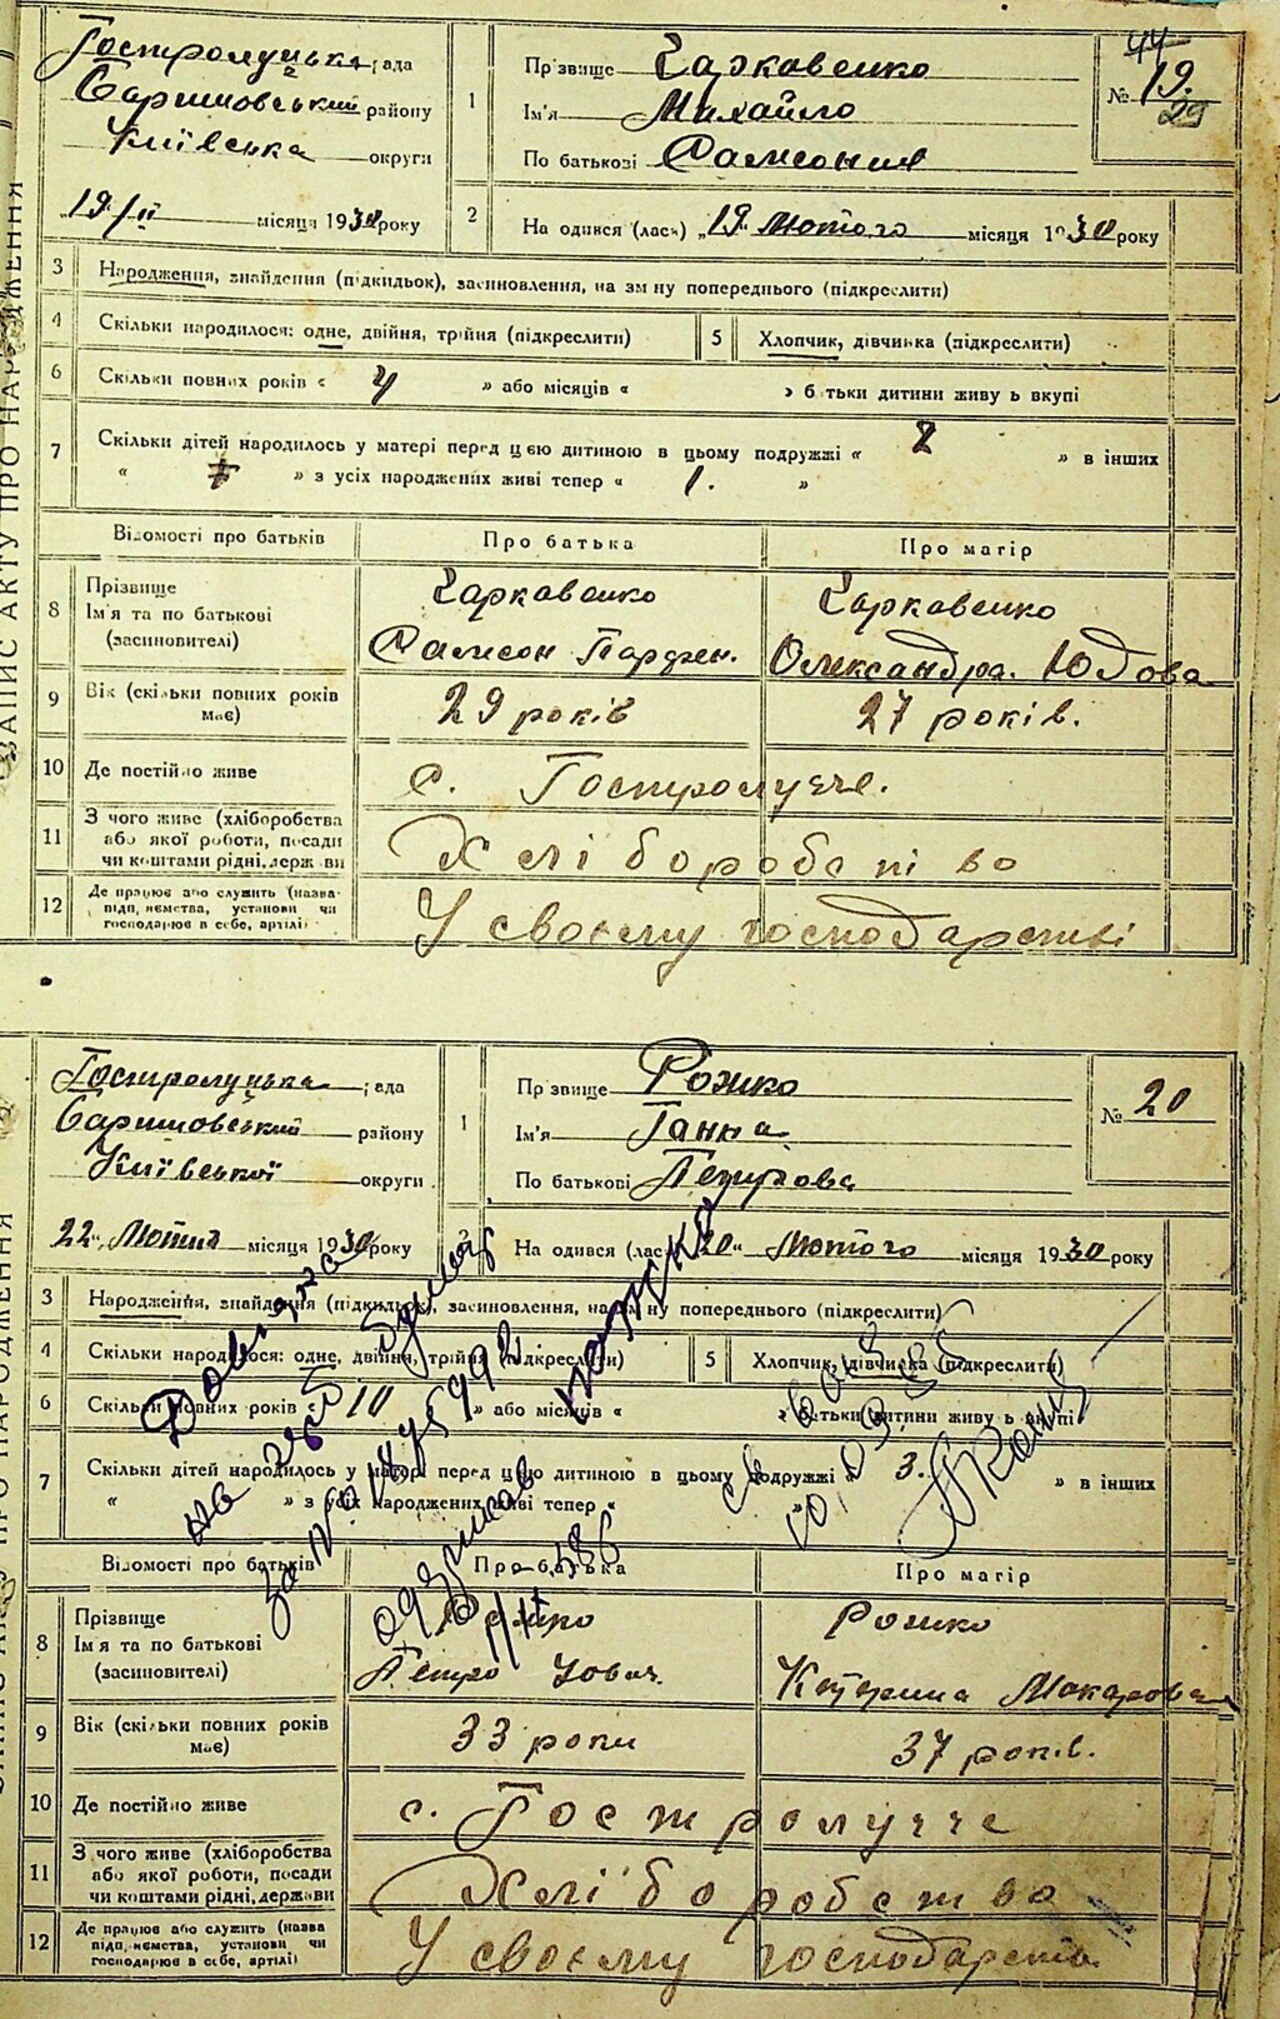 44
Гостролуцька рада
Баришовський району
Київська округи
1
Прізвище Харковенко
Ім'я Михайло
По батькові Самсонів
№ 19.
29
19/II місяця 1930 року
2
На одився (лась) „19" Лютого місяця 1930 року
3
Народження, знайдення (підкидьок), засиновлення, на зм ну попереднього (підкреслити)
4
Скільки народилося: одне, двійня, трійня (підкреслити)
5
Хлопчик, дівчинка (підкреслити)
6
Скільки повних років « 4 » або місяців « » б тьки дитини живу ь вкупі
7
Скільки дітей народилось у матері перед цією дитиною в цьому подружжі « 2 » в інших
« » з усіх народжених живі тепер « 1. »
Відомості про батьків
Про батька
Про матір
8
Прізвище
Ім'я та по батькові
(засиновителі)
Харковенко
Самсон Парфен.
Харковенко
Олександра. Юдова
9
Вік (скільки повних років
має)
29 років
27 років.
10
Де постійно живе
с. Гостролучче.
11
З чого живе (хліборобства
або якої роботи, посади
чи коштами рідні, держ ви
Хліборобство
12
Де працює або служить (назва
підп, ємства, установи чи
господарює в себе, артілі)
У своєму господарстві
ЗАПИС АКТУ ПРО НАРОДЖЕННЯ
Гостролуцька рада
Баришовський району
Київської округи
1
Прізвище Рожко
Ім'я Ганна
По батькові Петрова
№ 20
22" Лютня місяця 1930 року
2
На одився (лас „20" Лютого місяця 1930 року
3
Народження, знайдення (підкидьок), засиновлення, на зм ну попереднього (підкреслити)
4
Скільки народилося: одне, двійня, трійня (підкреслити)
5
Хлопчик, дівчинка (підкреслити)
6
Скільки повних років « 10 » або місяців « » батьки дитини живу ь вкупі
7
Скільки дітей народилось у матері перед цією дитиною в цьому подружжі « 3. » в інших
« » з усіх народжених живі тепер « »
Відомості про батьків
Про батька
Про матір
8
Прізвище
Ім'я та по батькові
(засиновителі)
Рожко
Петро Йович.
Рожко
Катерина Макарова
9
Вік (скільки повних років
має)
33 роки
37 років.
10
Де постійно живе
с. Гостролучче
11
З чого живе (хліборобства
або якої роботи, посади
чи коштами рідні, держави
Хліборобство
12
Де працює або служить (назва
підп, ємства, установи чи
господарює в себе, артілі)
У своєму господарстві